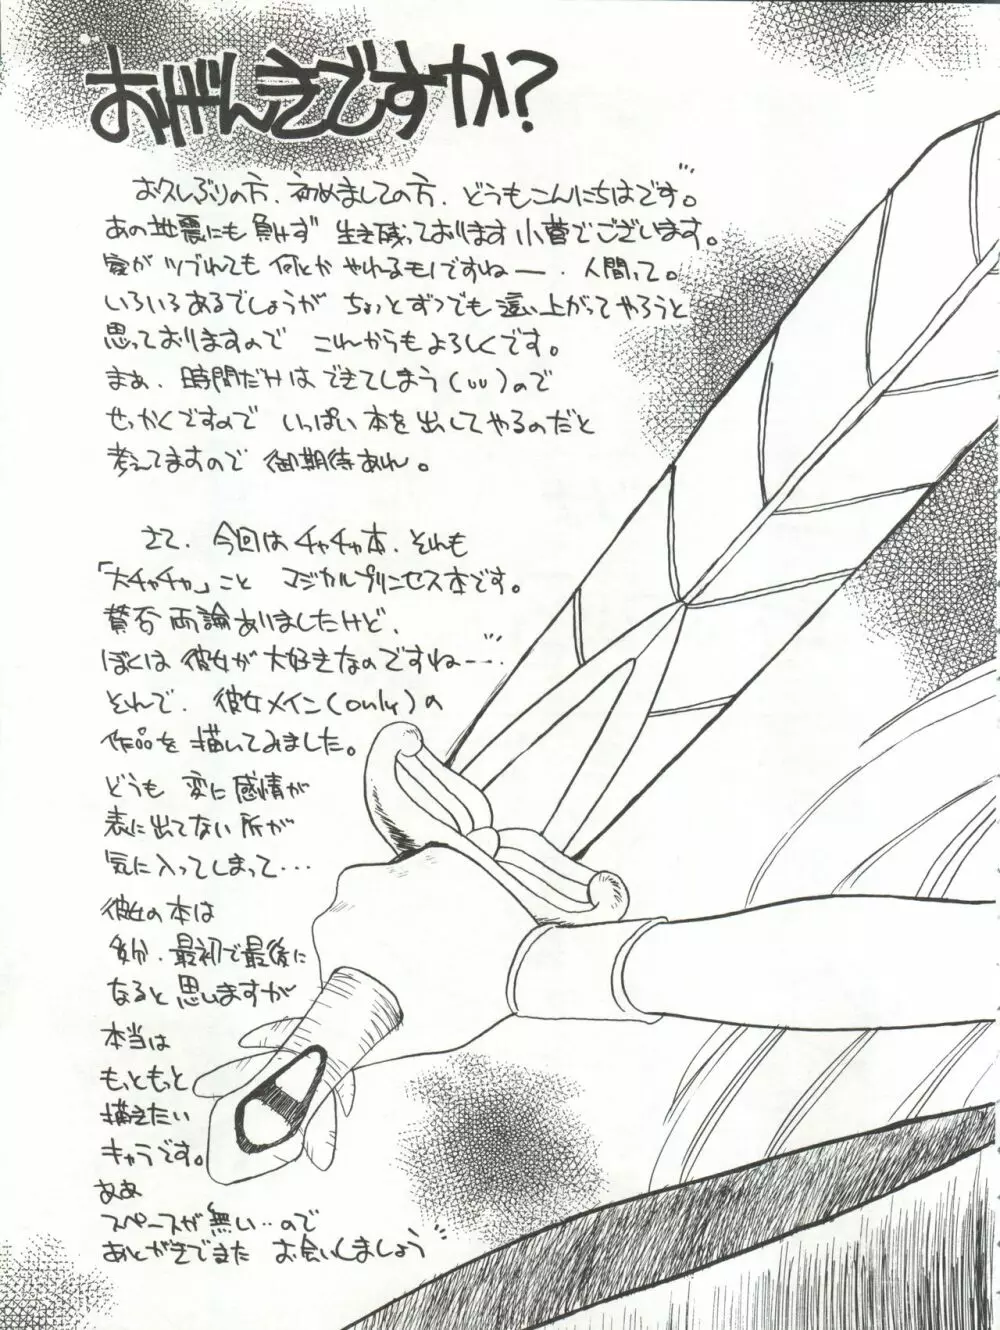 おげんきですか？
お久しぶりの方、初めましての方、どうもこんにちはです。
あの地震にも負けず 生き残っております小菅でございます。
家がツブれても 何とか やれるモノですねー、人間って。
いろいろあるでしょうが ちょっとずつでも這い上がってやろうと
思っておりますので これからもよろしくです。
まぁ、時間だけは できてしまう(UU)ので
せっかくですので いっぱい本を出してやるのだと
考えてますので 御期待あれ。
さて、今回は チャチャ本、それも
「大チャチャ」こと マジカルプリンセス本です。
賛否両論ありましたけど、
ぼくは 彼女が 大好きなのですねー…
それで、彼女メイン(only)の
作品を 描いてみました。
どうも 変に感情が
表に出てない所が
気に入ってしまって…
彼女の本は
多分、最初で最後に
なると思いますが
本当は
もっともっと
描きたい
キャラです。
ああ
スペースが無い…ので
あとがきでまた お会いしましょう